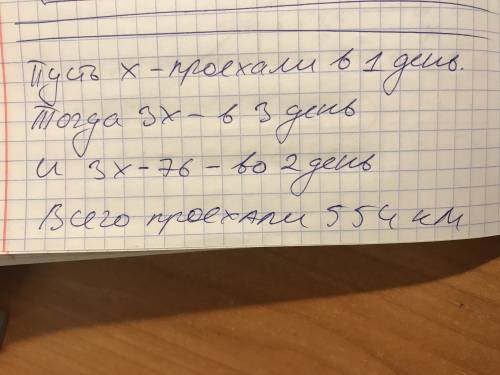 Пусть х - проехали в 1 день.
Тогда 3х - в 3 день
и 3х - 76 - во 2 день
Всего проехали 554 км